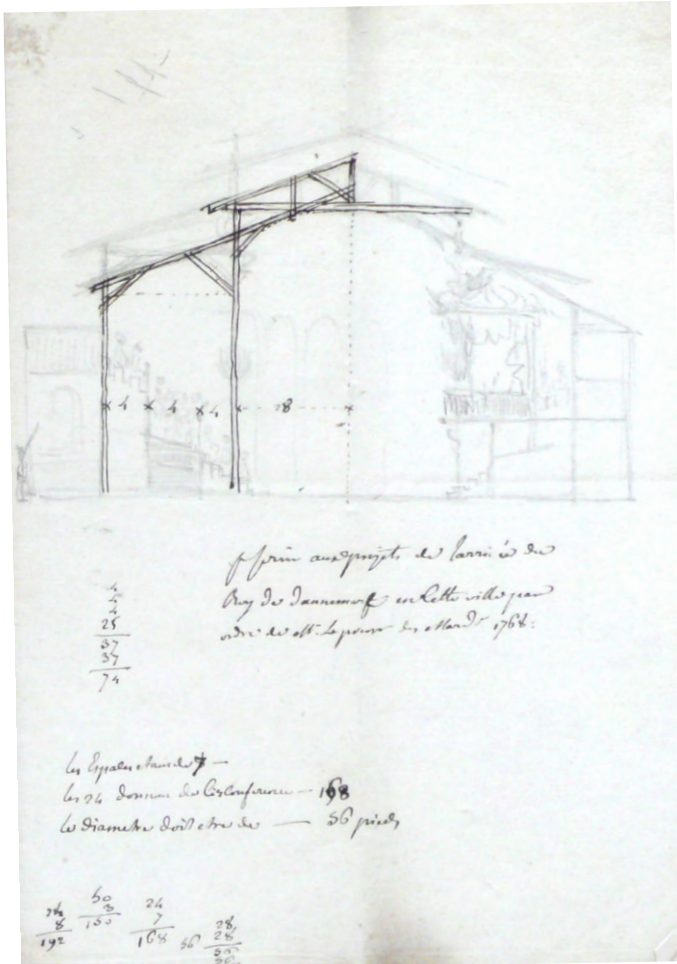 4 4 4 28
aux projets de larrivée du
Roy de dannemark en Cette ville par
ordre de Mr. Le prevost des Mards 1768.
4
4
4
25
37
37
74
les Espaces etans de 7 —
les 24 donnent de Circonference — 168
le diametre doit etre de — 56 pieds
24
8
192
50
3
150
24
7
168
56
28
28
56
56